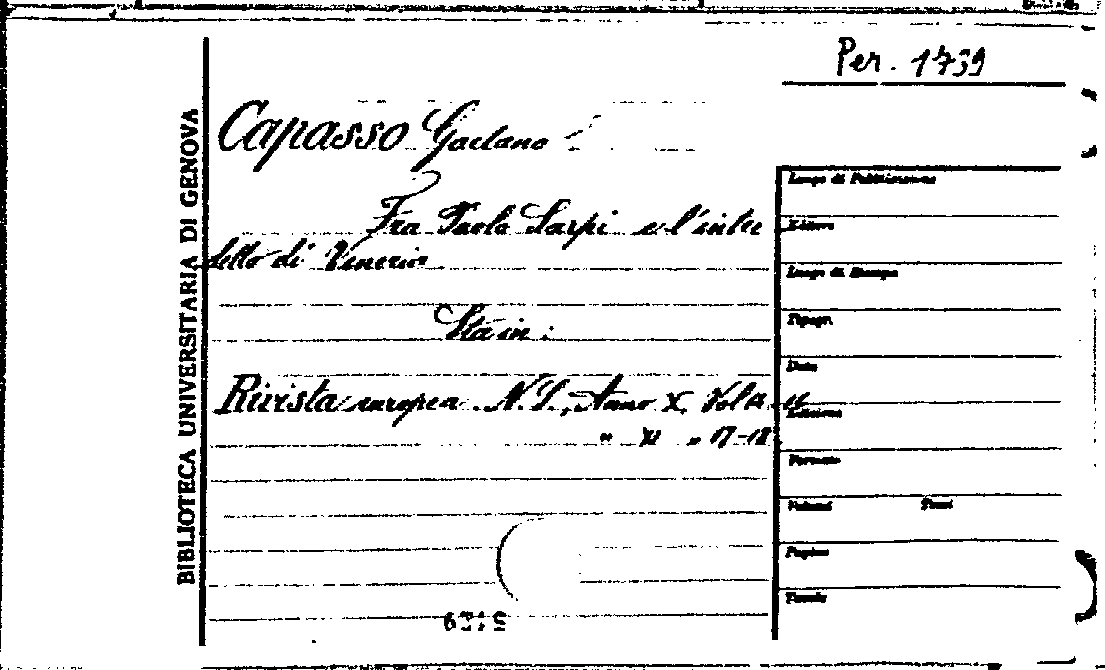 Per. 1739
BIBLIOTECA UNIVERSITARIA DI GENOVA
Capasso Gaetano
Fra Paolo Sarpi e l'inter
detto di Venezia
Sta in:
Rivista europea. N. S., Anno X, Vol.
" XI " 17-18
Luogo di Pubblicazione
Editore
Luogo di Stampa
Tipogr.
Data
Edizione
Formato
Volumi Tomi
Pagine
Tavole